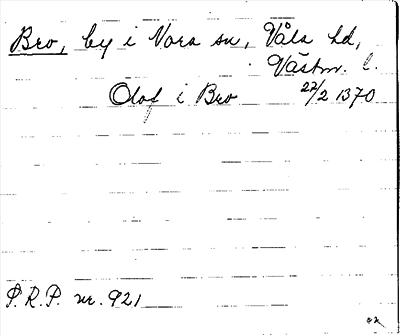 Bro, by i Nora sn, Våla hd,
Västm. l.
Olof i Bro 22/2 1370
P.R.P. nr. 921